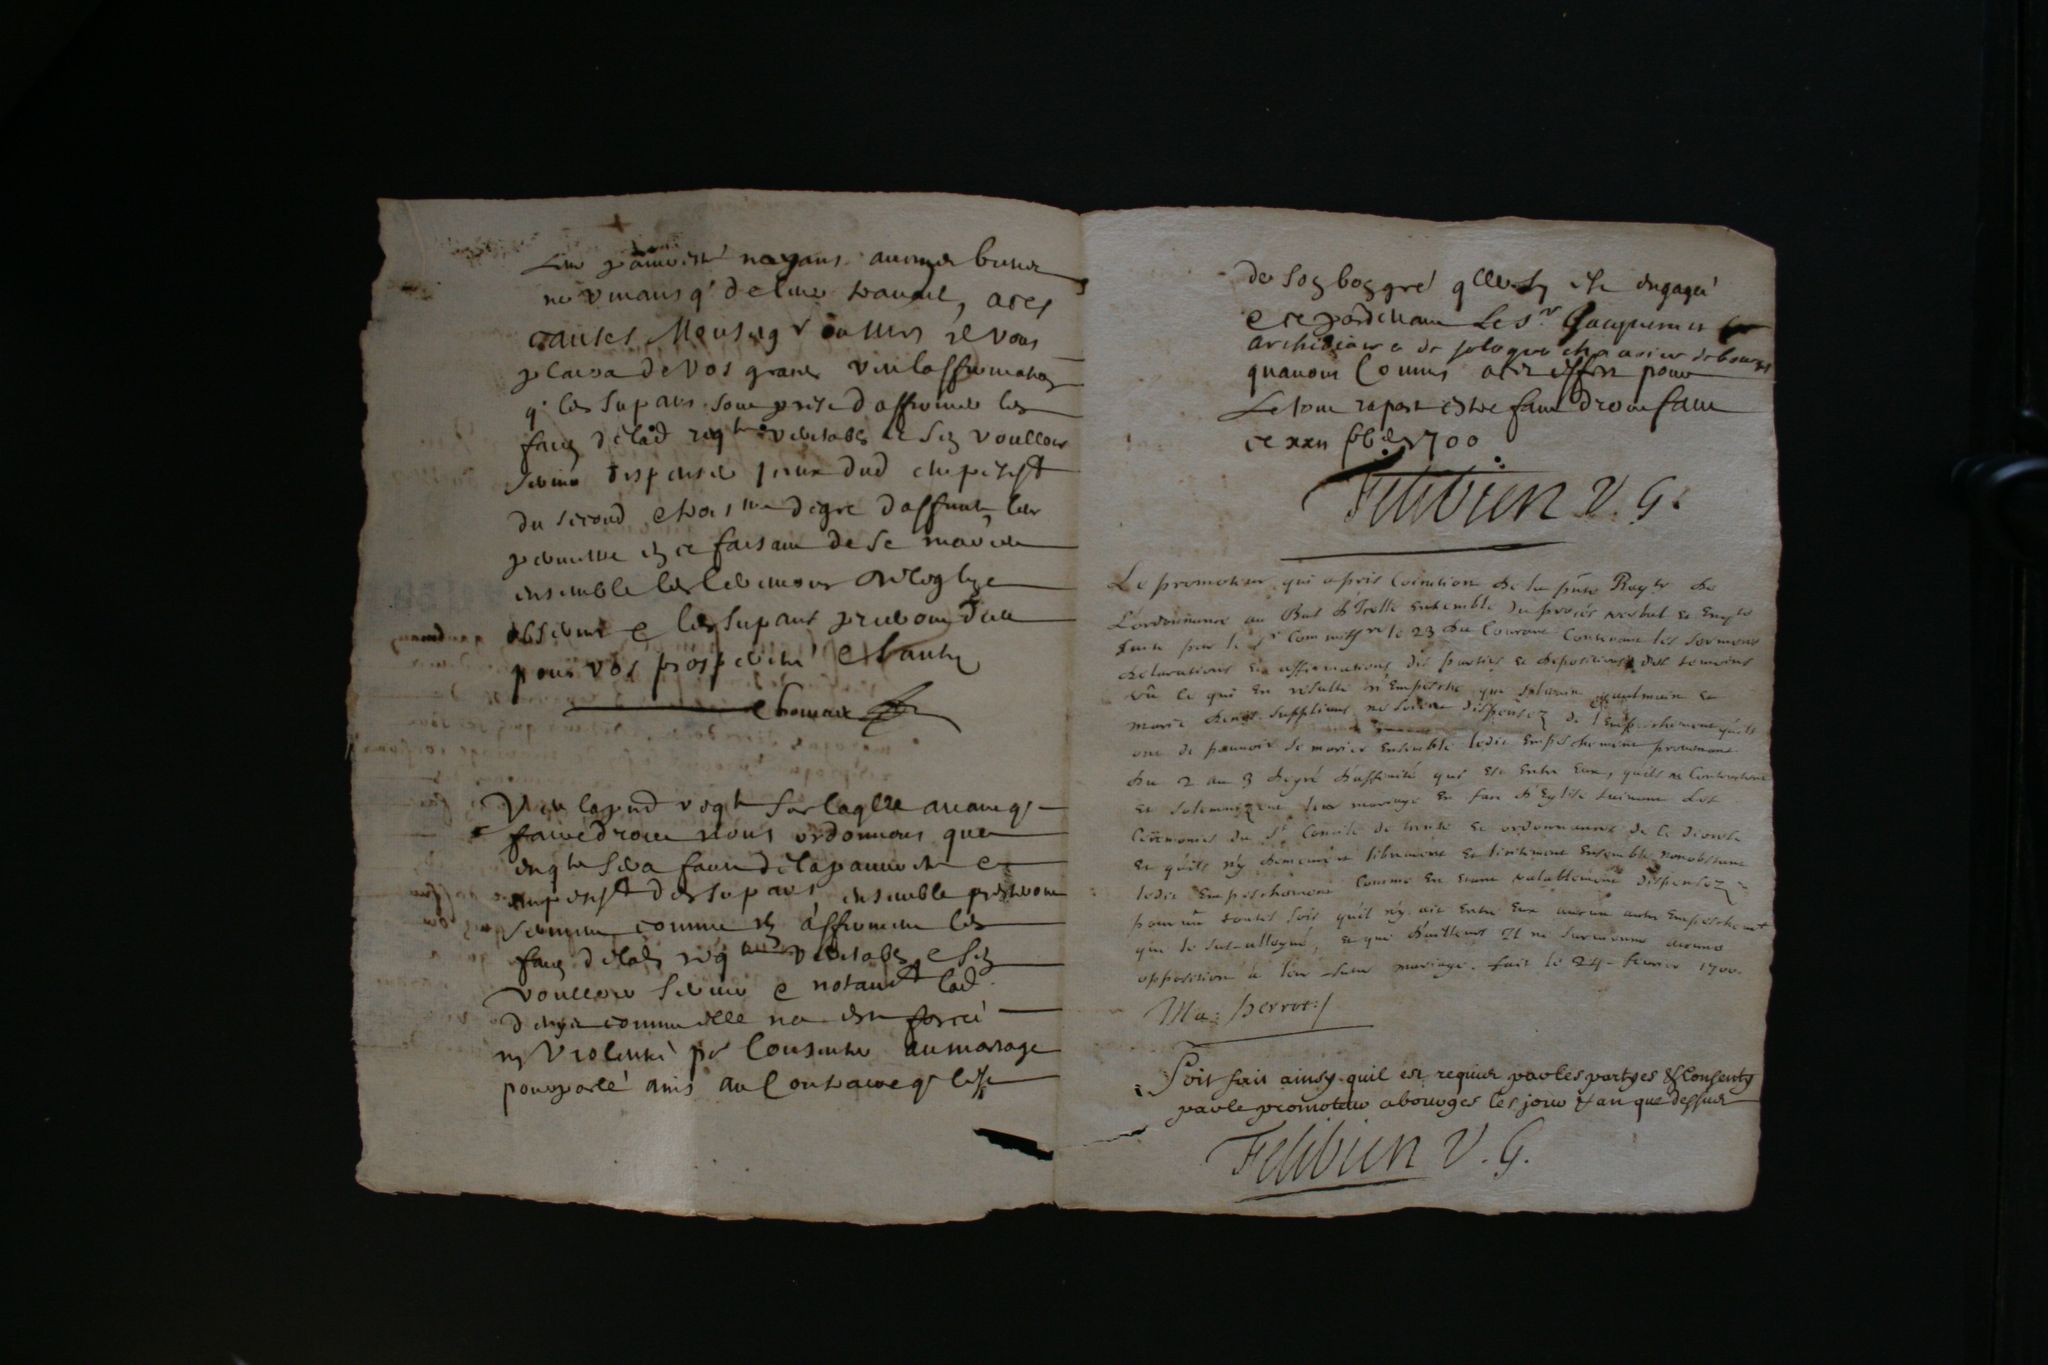 Leur pauvreté nayans aucuns biens
ne vivans q' de leur travail, a ces
causes Monseig.r ou Mrs il vous
plaira de vos graces veu laffirmation
q' les supans sont prests d'affirmer les
faits de lad reqte veritables et sen voulloir
servir dispenser iceux dud empeschet
du second et troisme degré daffinité, leur
permettre en ce faisant de se marier
ensemble les ceremonies de leglize
observees et les supans priront Dieu
pour vos prosperité et santé
Thomare
Veu la pnd reqte sur laqlle avant q'
faire droit nous ordonnons que
enqte sera faite de la pauvreté et
empescht des supans ensemble presteront
serment comme ils affirment les
faits de lad reqte veritables et sen
voulloir servir et notamt lad
Denye comme elle na esté forcé
ny violenté pr consentir au mariage
pourparlé ains au contraire q' cest
de son bon gré qlle sy est engagée
et ce pardevant le Sr Jacquemet
archidiacre de sologne chanoine de bourges
quavons commis a cet effect pour
le tout raporté estre fait droit fait
ce xxii fb.er 1700
Felibien V. G.
Le promoteur qui a pris comunication de la pnte Reqte de
L'ordonnance au Bas d'Icelle ensemble du procés verbal et Enqte
faite par le Sr Commissre le 23 du Courant contenant les sermens
declarations et affirmations des parties et depositions des temoins
Vû ce qui en résulte n'Empesche que Silvain Gaulmain et
marie denis supplians ne soient dispensez de l'Empeschement qu'ils
ont de pouvoir se marier ensemble ledit Empeschement provenant
du 2 au 3 degré d'affinité qui est entre eux, qu'ils ne contractent
et solemnizent leur mariage en face d'Eglise suivant les
Cérémonies du St Concile de trente et ordonnances de ce diocese
et qu'ils n'y demeurent librement et licitement ensemble nonobstant
ledit Empeschement comme en étant valablement dispensez
pourvû toutes fois qu'il n'y ait entre eux aucun autre Empeschemt
que le sus-allegué, et que d'ailleurs Il ne survienne aucune
opposition a leur futur mariage. fait le 24 fevrier 1700.
Ma: perrot
Soit fait ainsy quil est requis par les partyes & consenty
par le promoteur a bourges les jour & an que dessus
Felibien V. G.